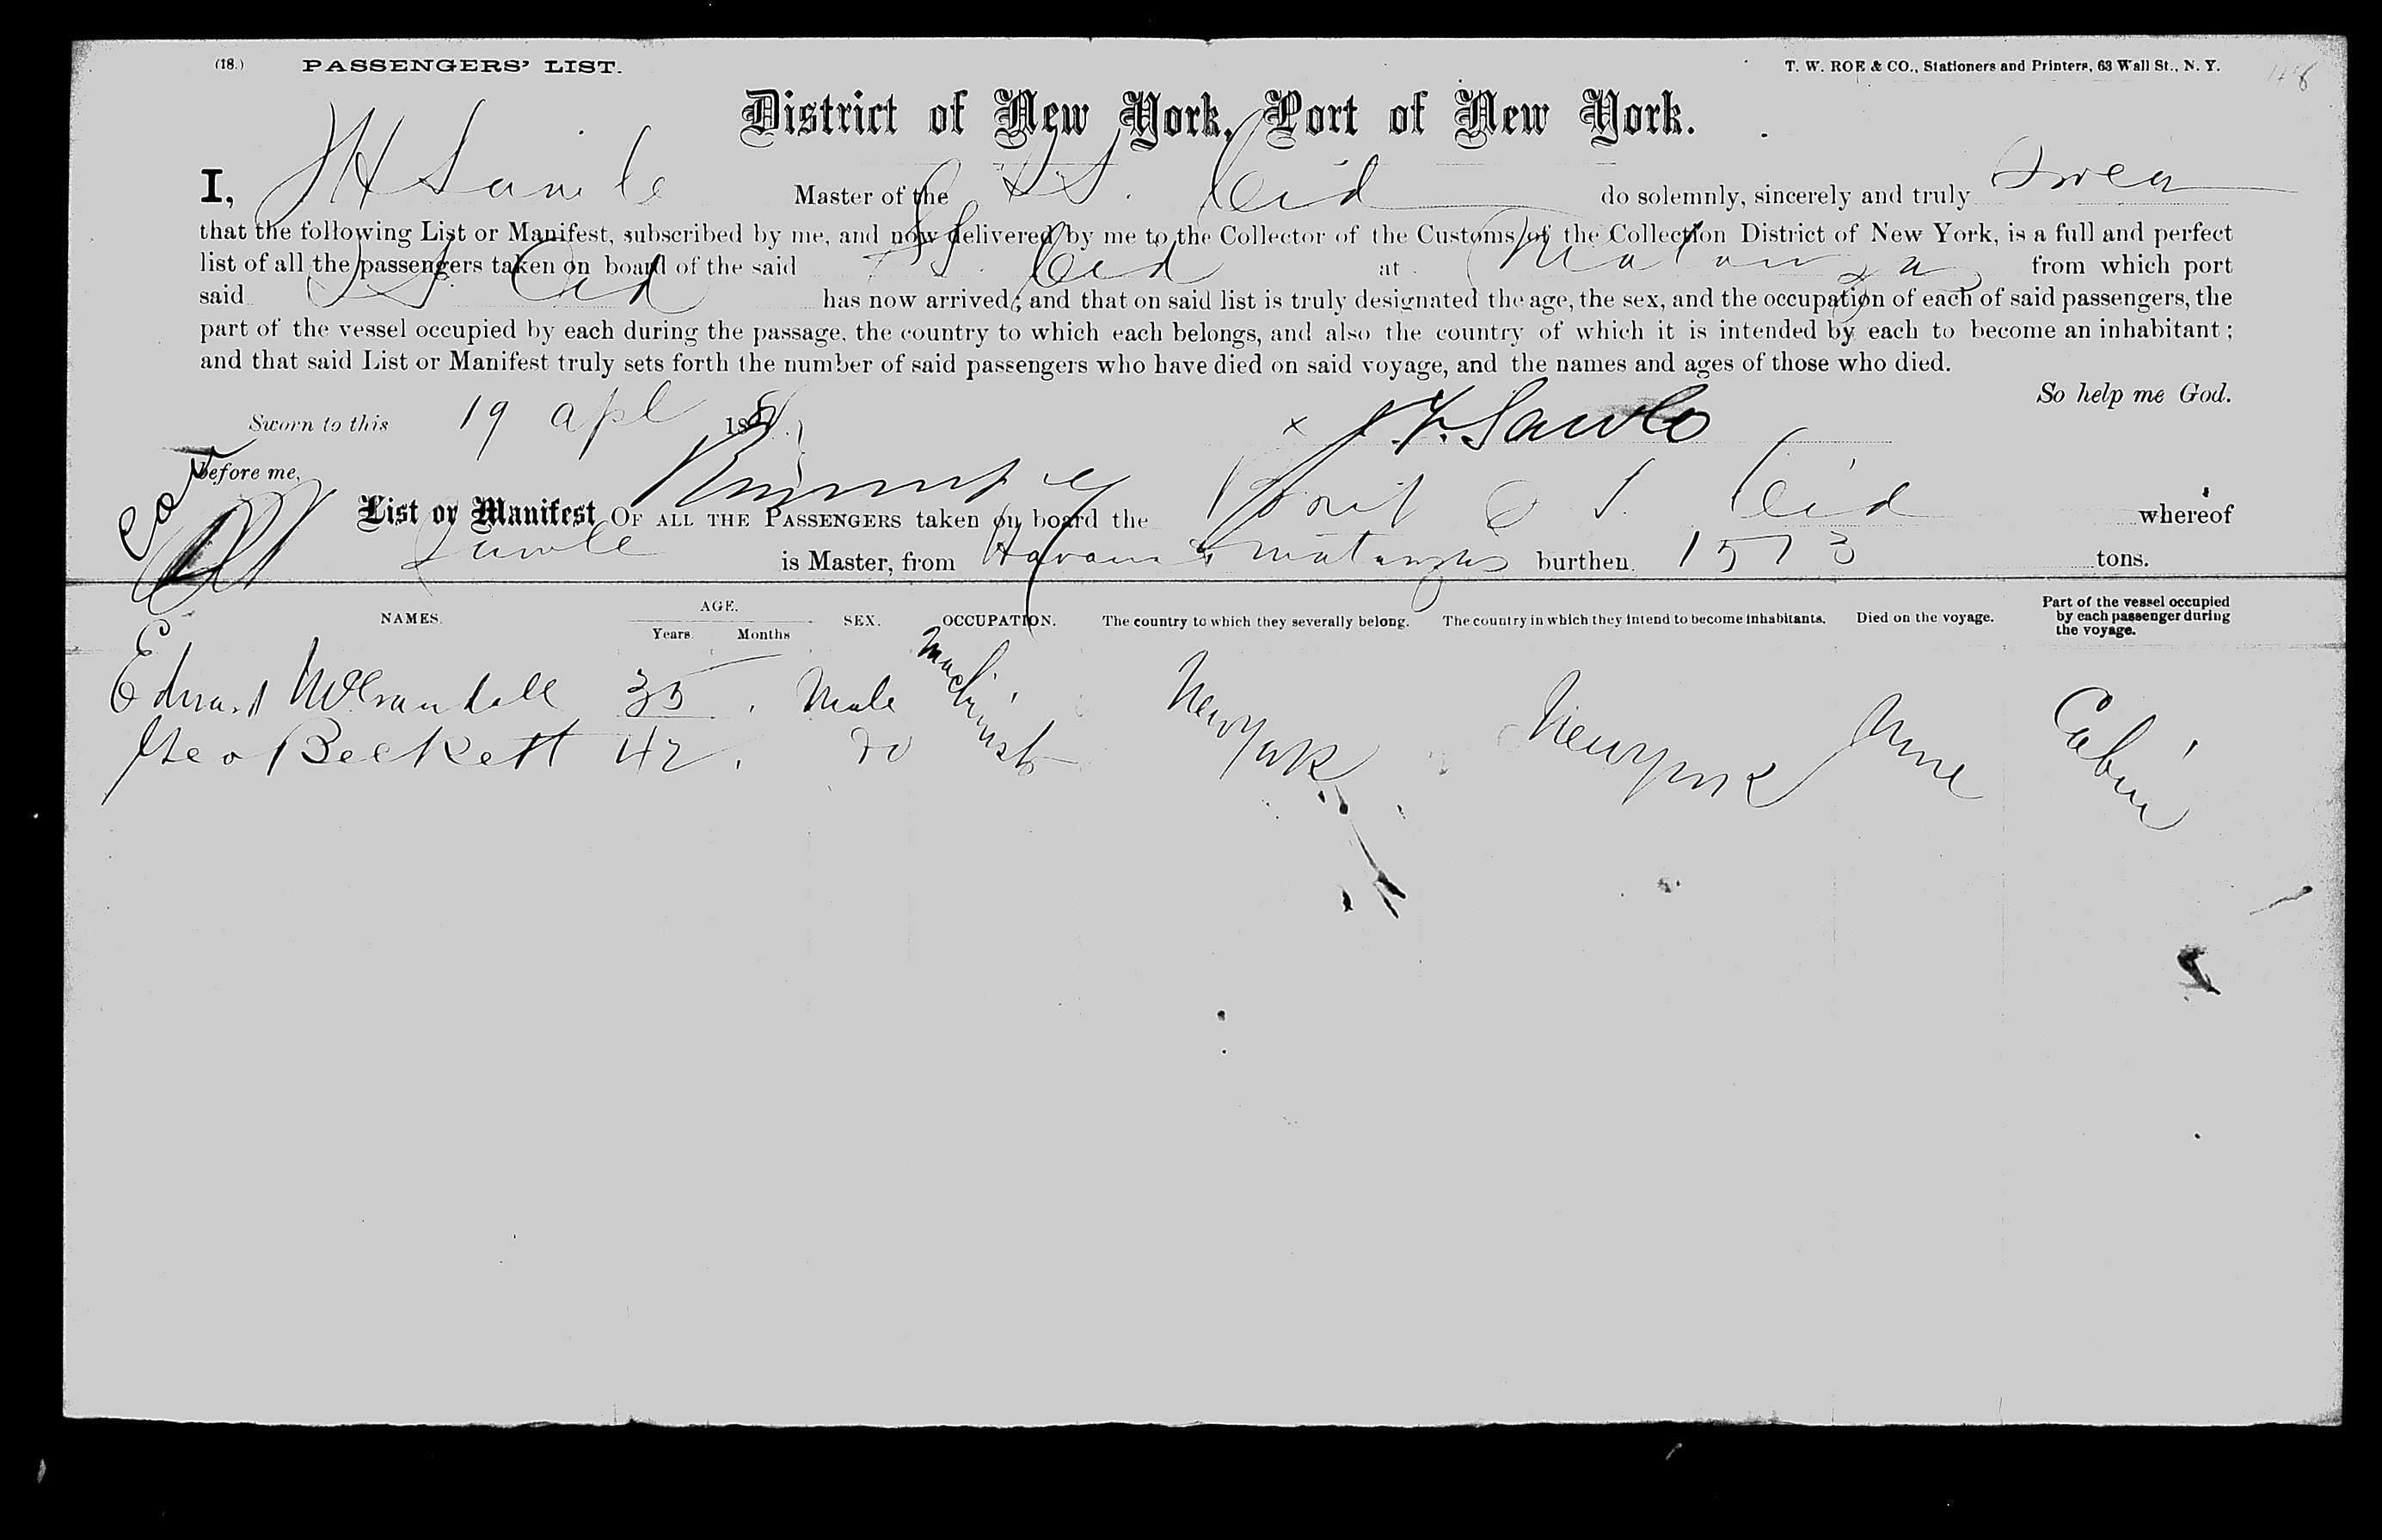 (18.) PASSENGERS' LIST. T. W. ROE & CO., Stationers and Printers, 63 Wall St., N. Y.
District of New York, Port of New York.
I, Master of the S.S. Cid do solemnly, sincerely and truly Swear
that the following List or Manifest, subscribed by me, and now delivered by me to the Collector of the Customs of the Collection District of New York, is a full and perfect
list of all the passengers taken on board of the said S.S. Cid at Matanzas from which port
said S.S. Cid has now arrived; and that on said list is truly designated the age, the sex, and the occupation of each of said passengers, the
part of the vessel occupied by each during the passage, the country to which each belongs, and also the country of which it is intended by each to become an inhabitant;
and that said List or Manifest truly sets forth the number of said passengers who have died on said voyage, and the names and ages of those who died.
So help me God.
Sworn to this 19 apl 188
before me,
List or Manifest OF ALL THE PASSENGERS taken on board the Brit S.S. Cid whereof
is Master, from Havana & Matanzas burthen 1573 tons.
NAMES. AGE. Years Months SEX. OCCUPATION. The country to which they severally belong. The country in which they intend to become inhabitants. Died on the voyage. Part of the vessel occupied by each passenger during the voyage.
Edward McCrandall 35 Male Machinist New York New York None Cabin
Geo Beckett 42 do